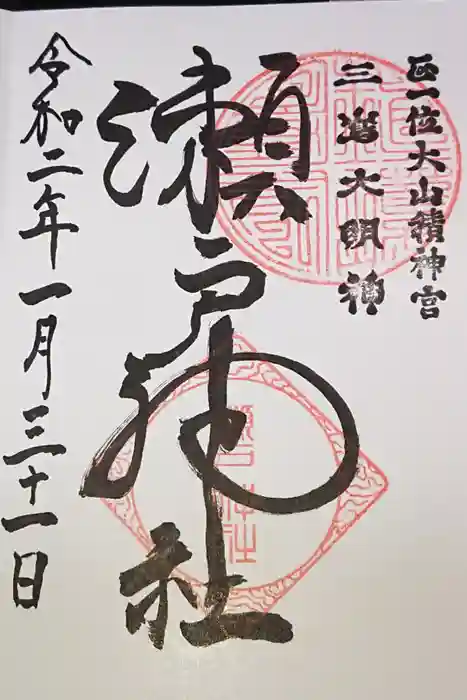 正一位大山積神宮
三嶌大明神
瀬戸神社
令和二年一月三十一日
瀬戸神社